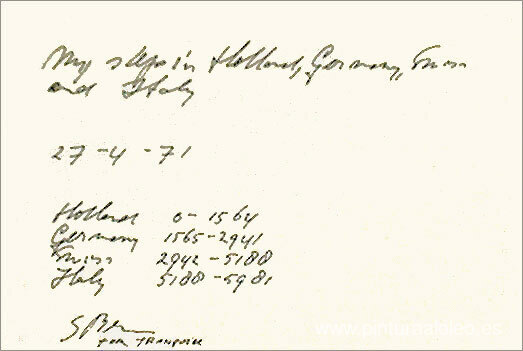 My steps in Holland, Germany, Swiss
and Italy
27-4-71
Holland 0-1564
Germany 1565-2941
Swiss 2942-5188
Italy 5188-5981
for
www.pinturaaloleo.es